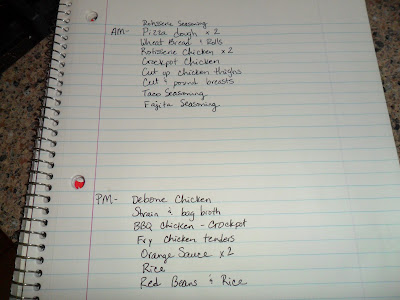 Rotisserie Seasoning
AM- Pizza dough x 2
Wheat Bread & Rolls
Rotissene Chicken x 2
Crockpot Chicken
Cut up chicken thighs
Cut & pound breasts
Taco Seasoning
Fajita Seasoning
PM- Debone Chicken
Strain & bag broth
BBQ Chicken - Crockpot
Fry chicken tenders
Orange Sauce x 2
Rice
Red Beans & Rice